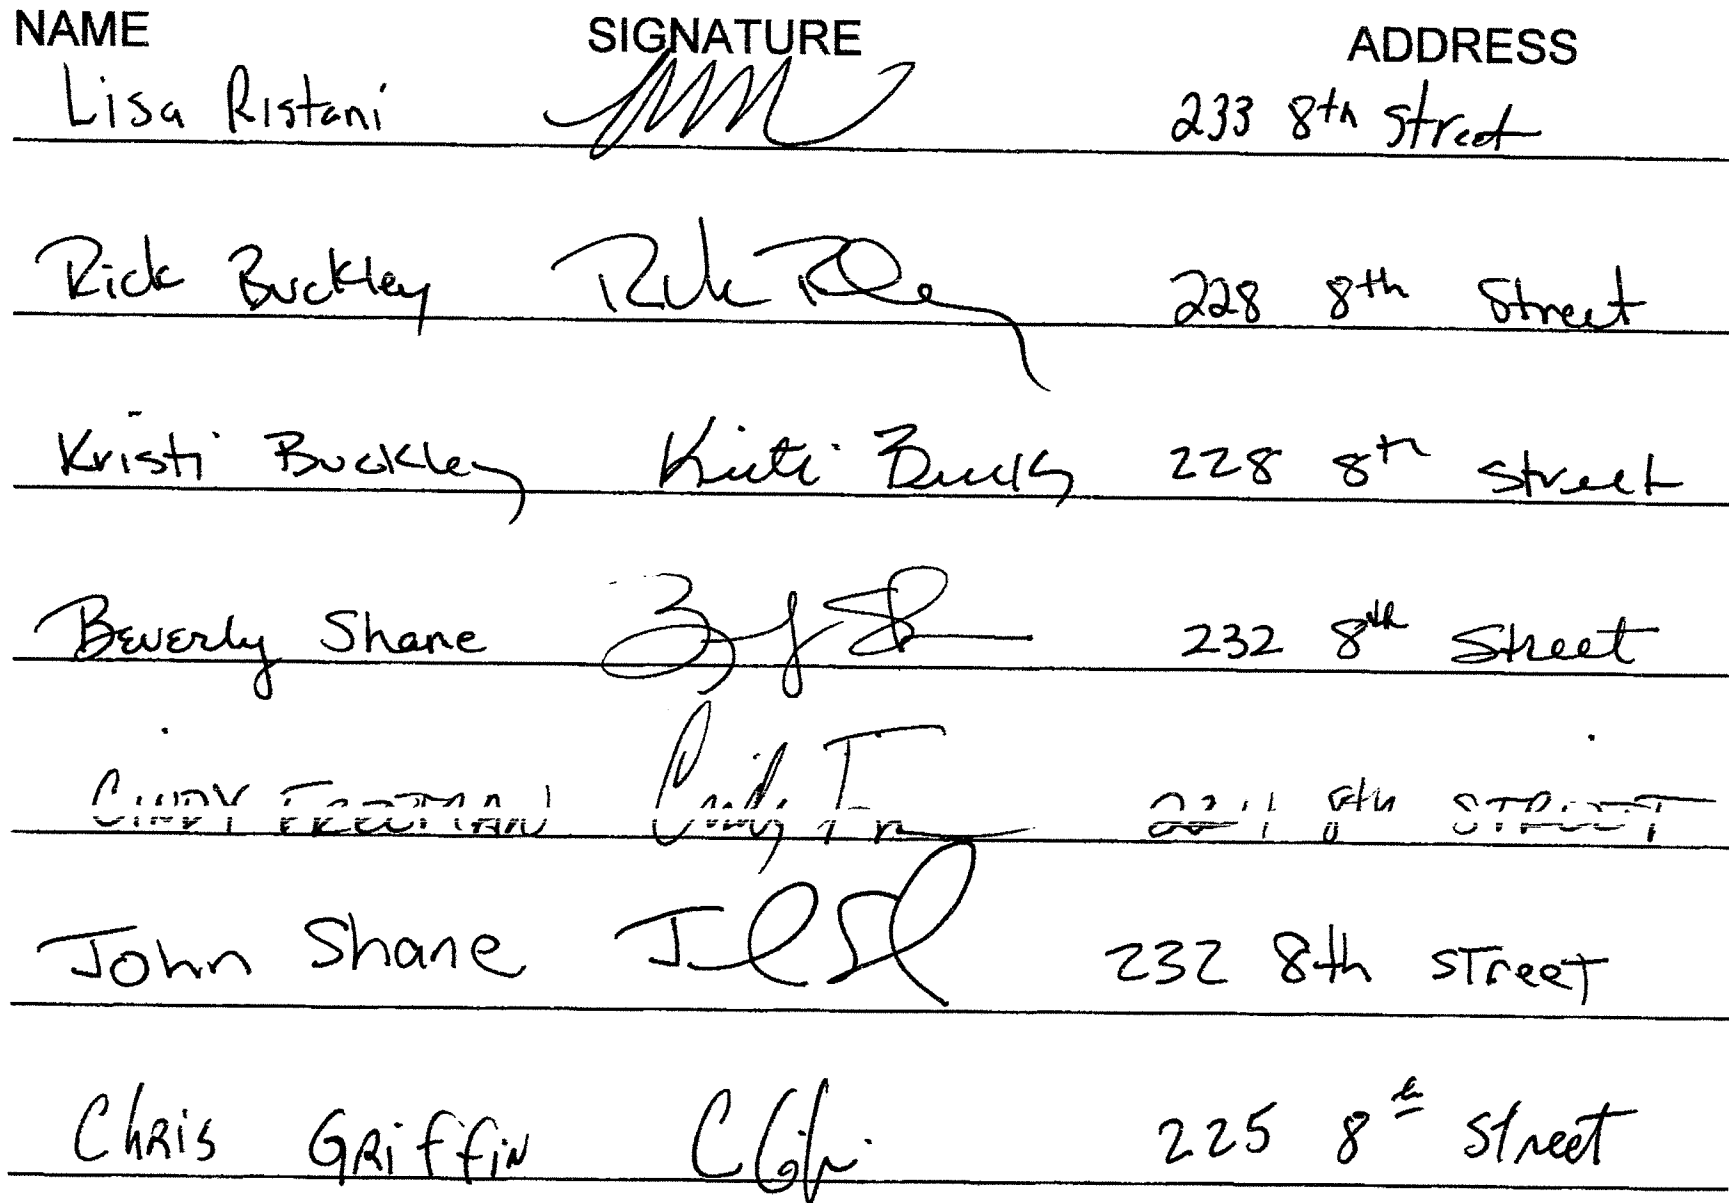 NAME SIGNATURE ADDRESS
Lisa Ristani 233 8th Street
Rick Buckley 228 8th Street
Kristi Buckley Kristi Buckley 228 8th Street
Beverly Shane 232 8th Street
CINDY FREEMAN Cindy 8th STREET
John Shane 232 8th Street
Chris Griffin 225 8th Street